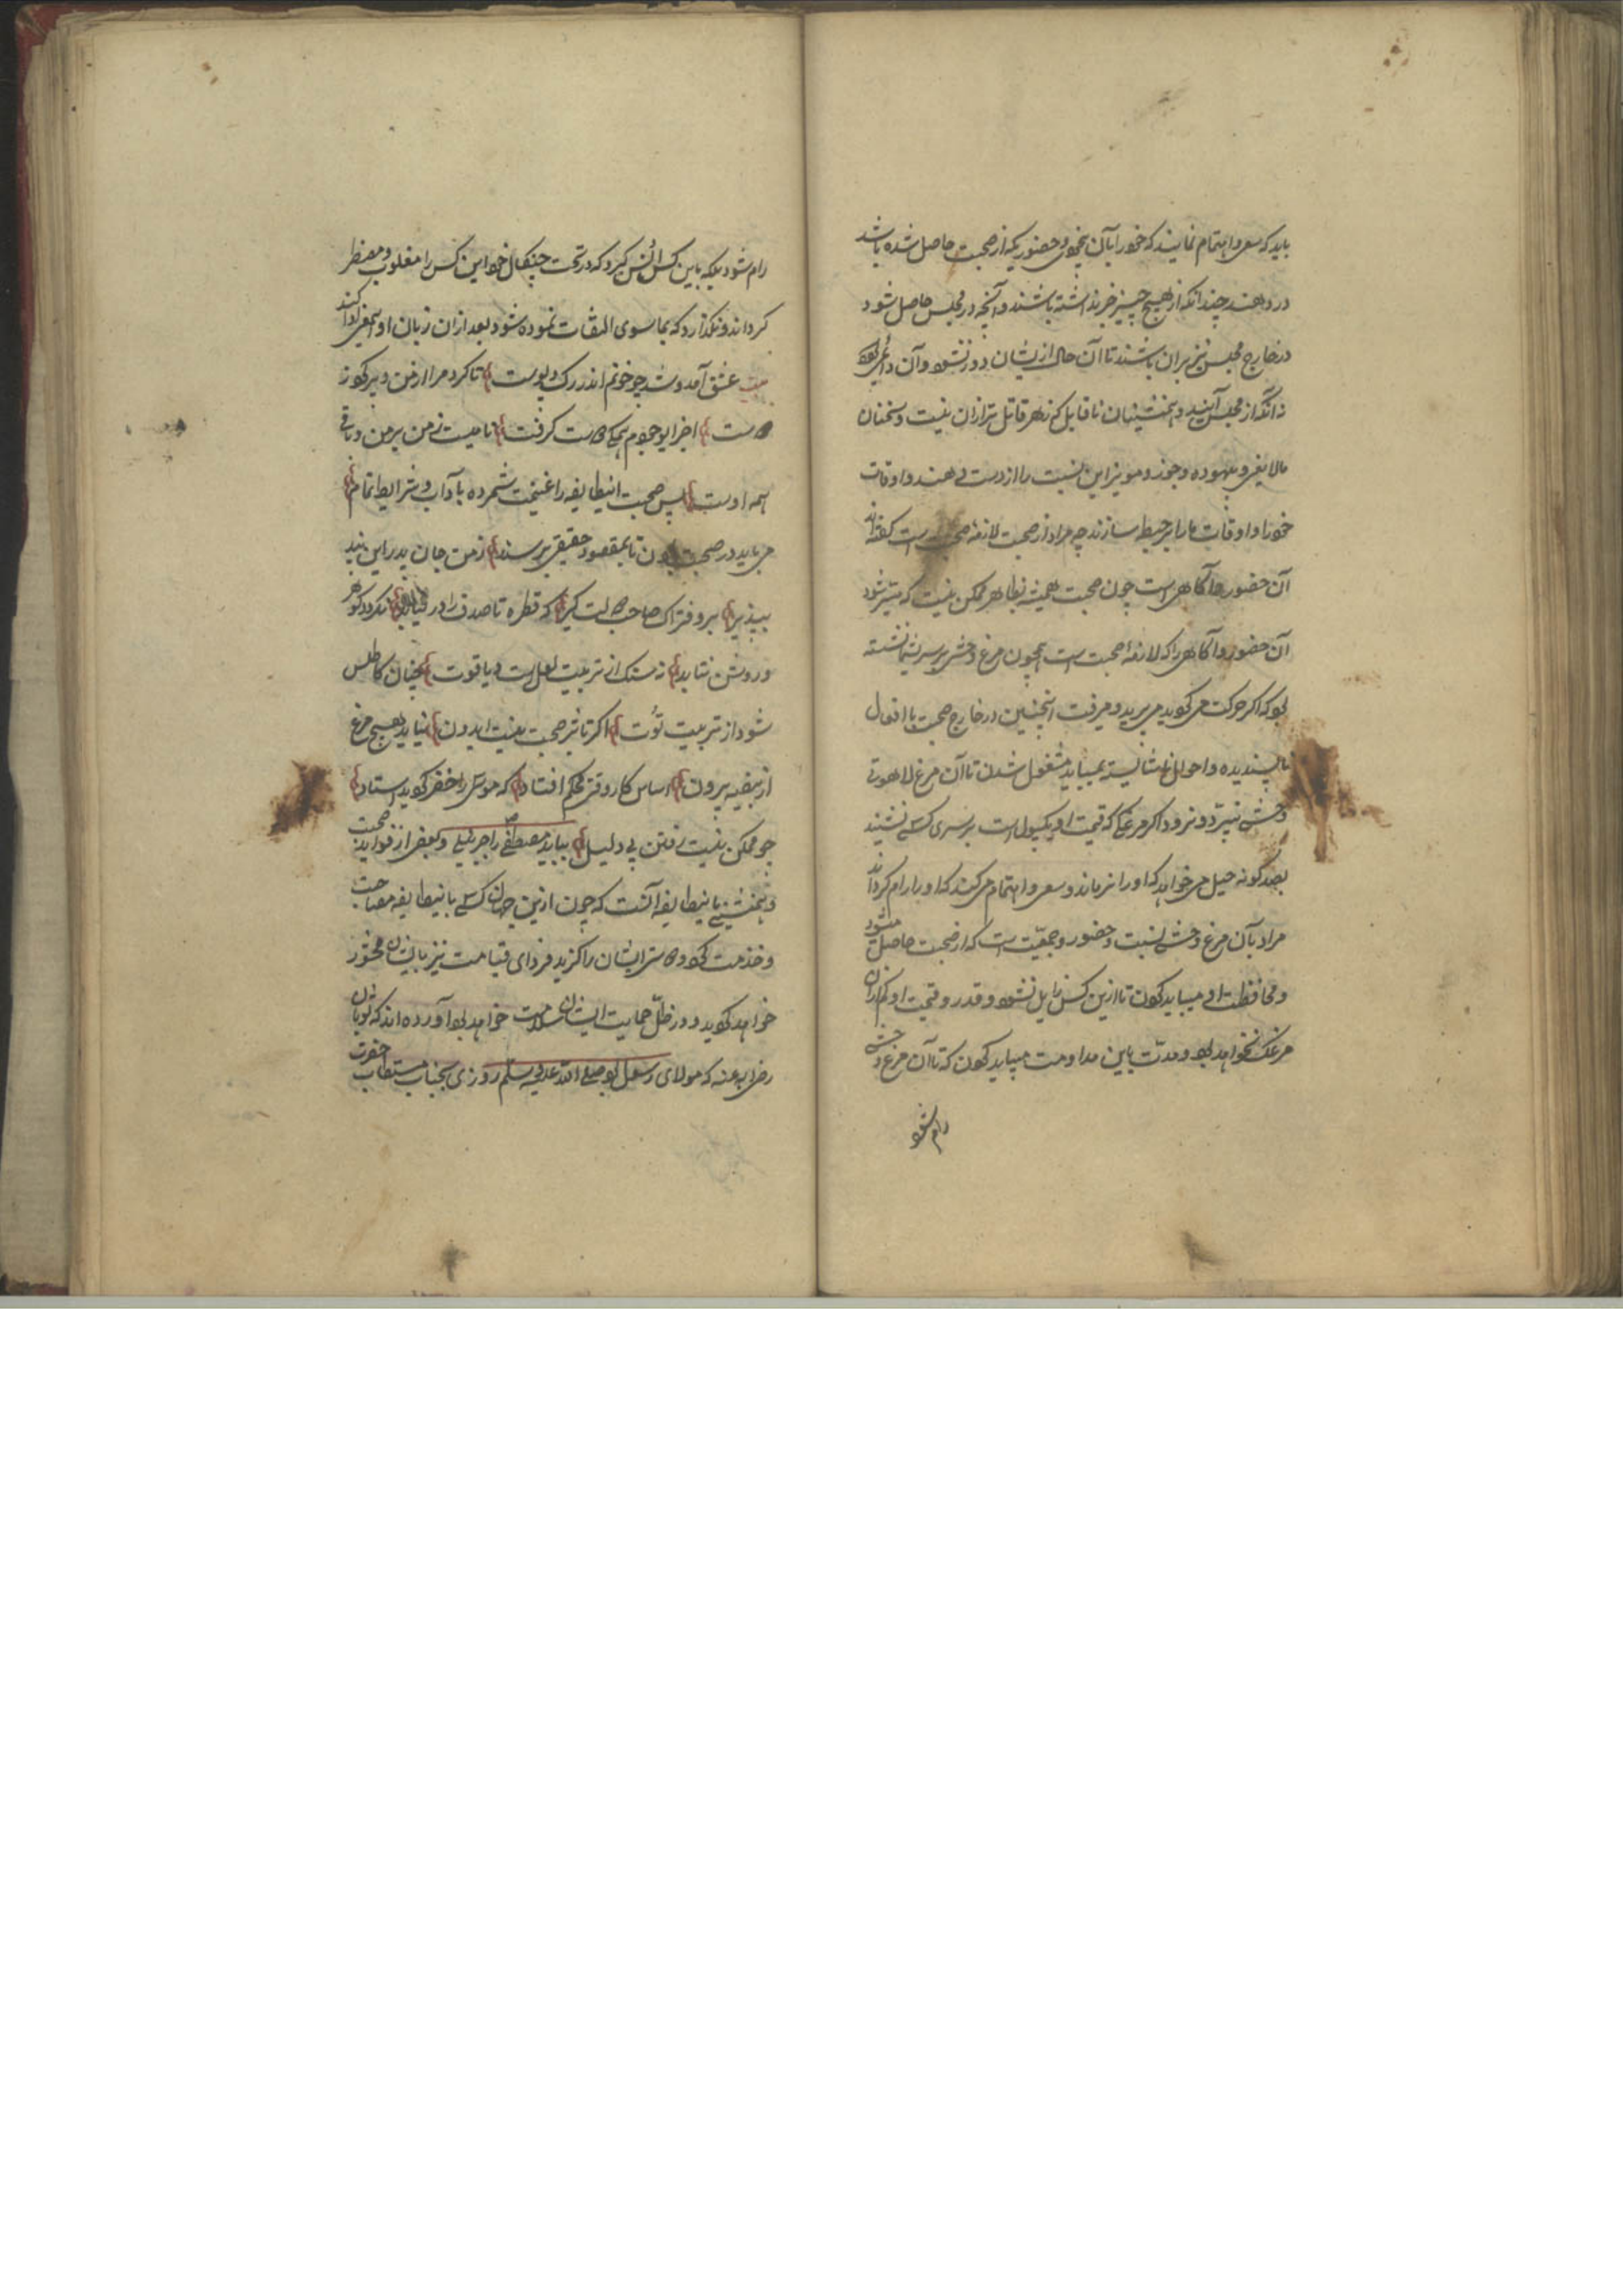 باید که سعی و اهتمام نمایند که خود را بآن بیخودی و حضوریکه از صحبت حاصل شده باشد
در دهند چندانکه از هیچ چیز خبر نداشته باشند و آنچه در مجلس حاصل شود
در خارج مجلس نیز بران باشند تا آن حال ازیشان دور نشود و آن
نه آنکه از مجلس آیند و همنشینان ناقابل که زهر قاتل تر ازان نیست و سخنان
مالایعنی و بیهوده و جوز و مویز این نسبت را از دست دهند و اوقات
خود را و اوقات ما را بر حبطه سازند چه مراد از صحبت لازمه صحبت است گفته اند
آن حضور و آگاهی است چون صحبت همیشه بظاهر ممکن نیست که میسر شود
آن حضور و آگاهی را که لازمه صحبت است همچون مرغ وحشی بر سر شما نشسته
بود که اگر حرکت می کوید می پرید و میرفت اینچنین در خارج صحبت با افعال
ناپسندیده و احوال ناشایسته نمیباید مشغول شدن تا آن مرغ لاهوتی
وحشی نپرد و نرود اگر مرغکی که قیمت او یکپول است بر سری کسی نشیند
بصد گونه حیل می خواهد که او را نرماند و سعی و اهتمام می کند که او را رام گرداند
مراد بآن مرغ وحشی نسبت و حضور و جمعیت است که از صحبت حاصل میشود
و محافظت او میباید کردن تا ازین کس زایل نشود و قدر و قیمت او کم ازان
مرغک نخواهد بود و مدت باین مداومت میباید کردن که تا آن مرغ وحشی
رام شود
رام شود بلکه باین کس انس گیرد که در تحت چنکال خود این کس را مغلوب و مضطر
گرداند و نگذارد که بماسوی التفات نموده شود بعد ازان زبان او این معنی ادا کند
بیت عشق آمد و شد چو خونم اندر رگ و پوست تا کرد مرا از من و پر کرد ز
دوست اجزای وجودم همگی دوست گرفت نامیست ز من بر من و باقی
همه اوست پس صحبت اینطایفه را غنیمت شمرده بآداب و شرایط تمام
می باید در صحبت بودن تا بمقصود حقیقی برسند ز من جان پدر این پند
بپذیر برو فتراک صاحب دولت گیر که قطره تا صدف را در نیابد نگردد گوهر
و روشن نتابد ز سنگ از تربیت لعل است و یاقوت چنان کاطلس
شود از تربیت توت اگر تاثیر صحبت نیست ایدون نیاید هیچ مرغ
از بیضه بیرون اساس کار وقتی محکم افتاد که موسی را خضر گوید استاد
چو ممکن نیست رفتن بی دلیل بباید مصطفی را جبریلی و بعضی از فواید صحبت
و همنشینی باینطایفه آنست که چون ازین جهان کسی باینطایفه مصاحبت
و خدمت کرد و دوستی ایشان را گزید فردای قیامت نیز بایشان محشور
خواهد گردید و در ظل حمایت ایشان سلامت خواهد بود آورده اند که ثوبان
رضی الله عنه که مولای رسول بود صلی الله علیه و سلم روزی بجناب مستطاب حضرت